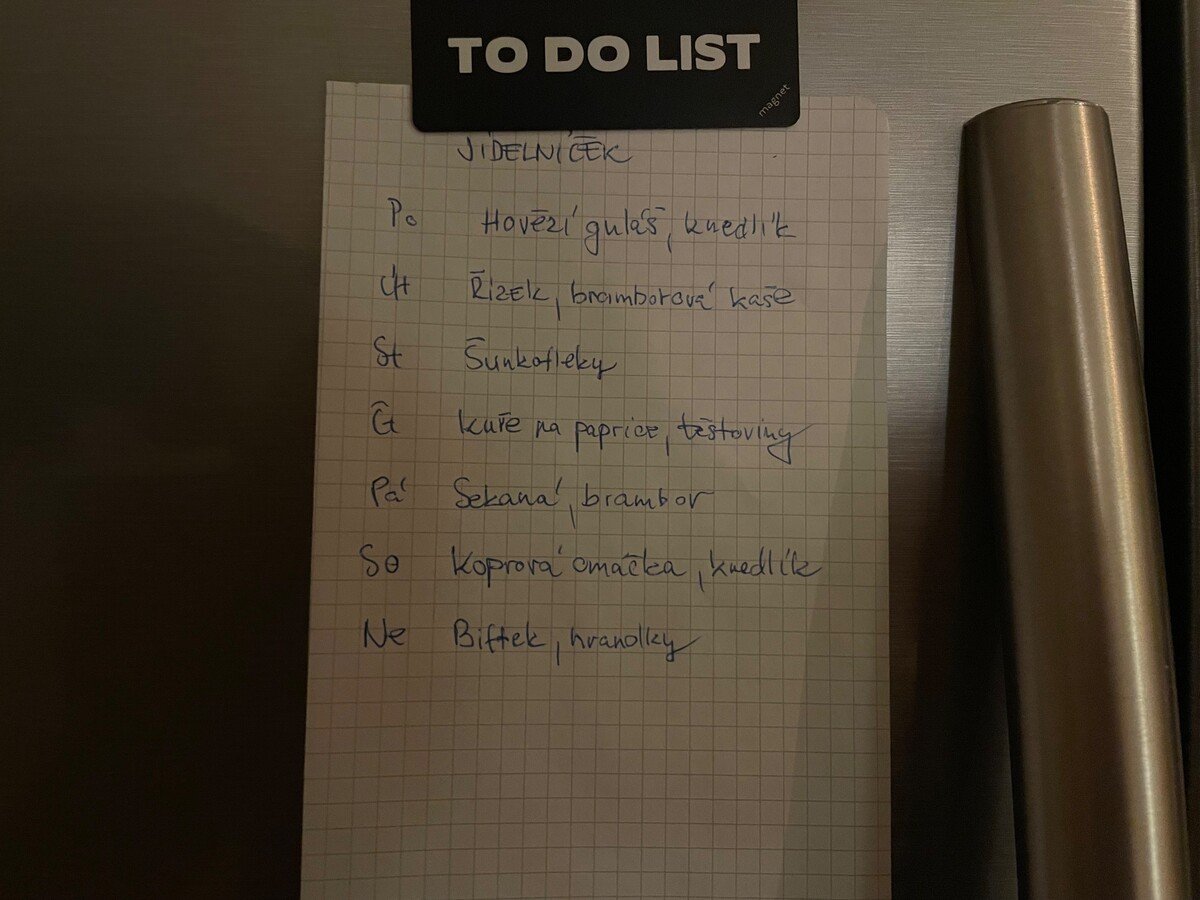 TO DO LIST
magnet
JÍDELNÍČEK
Po Hovězí guláš, knedlík
Út Řízek, bramborová kaše
St Šunkofleky
Čt Kuře na paprice, těstoviny
Pá Sekaná, brambor
So Koprová omáčka, knedlík
Ne Biftek, hranolky